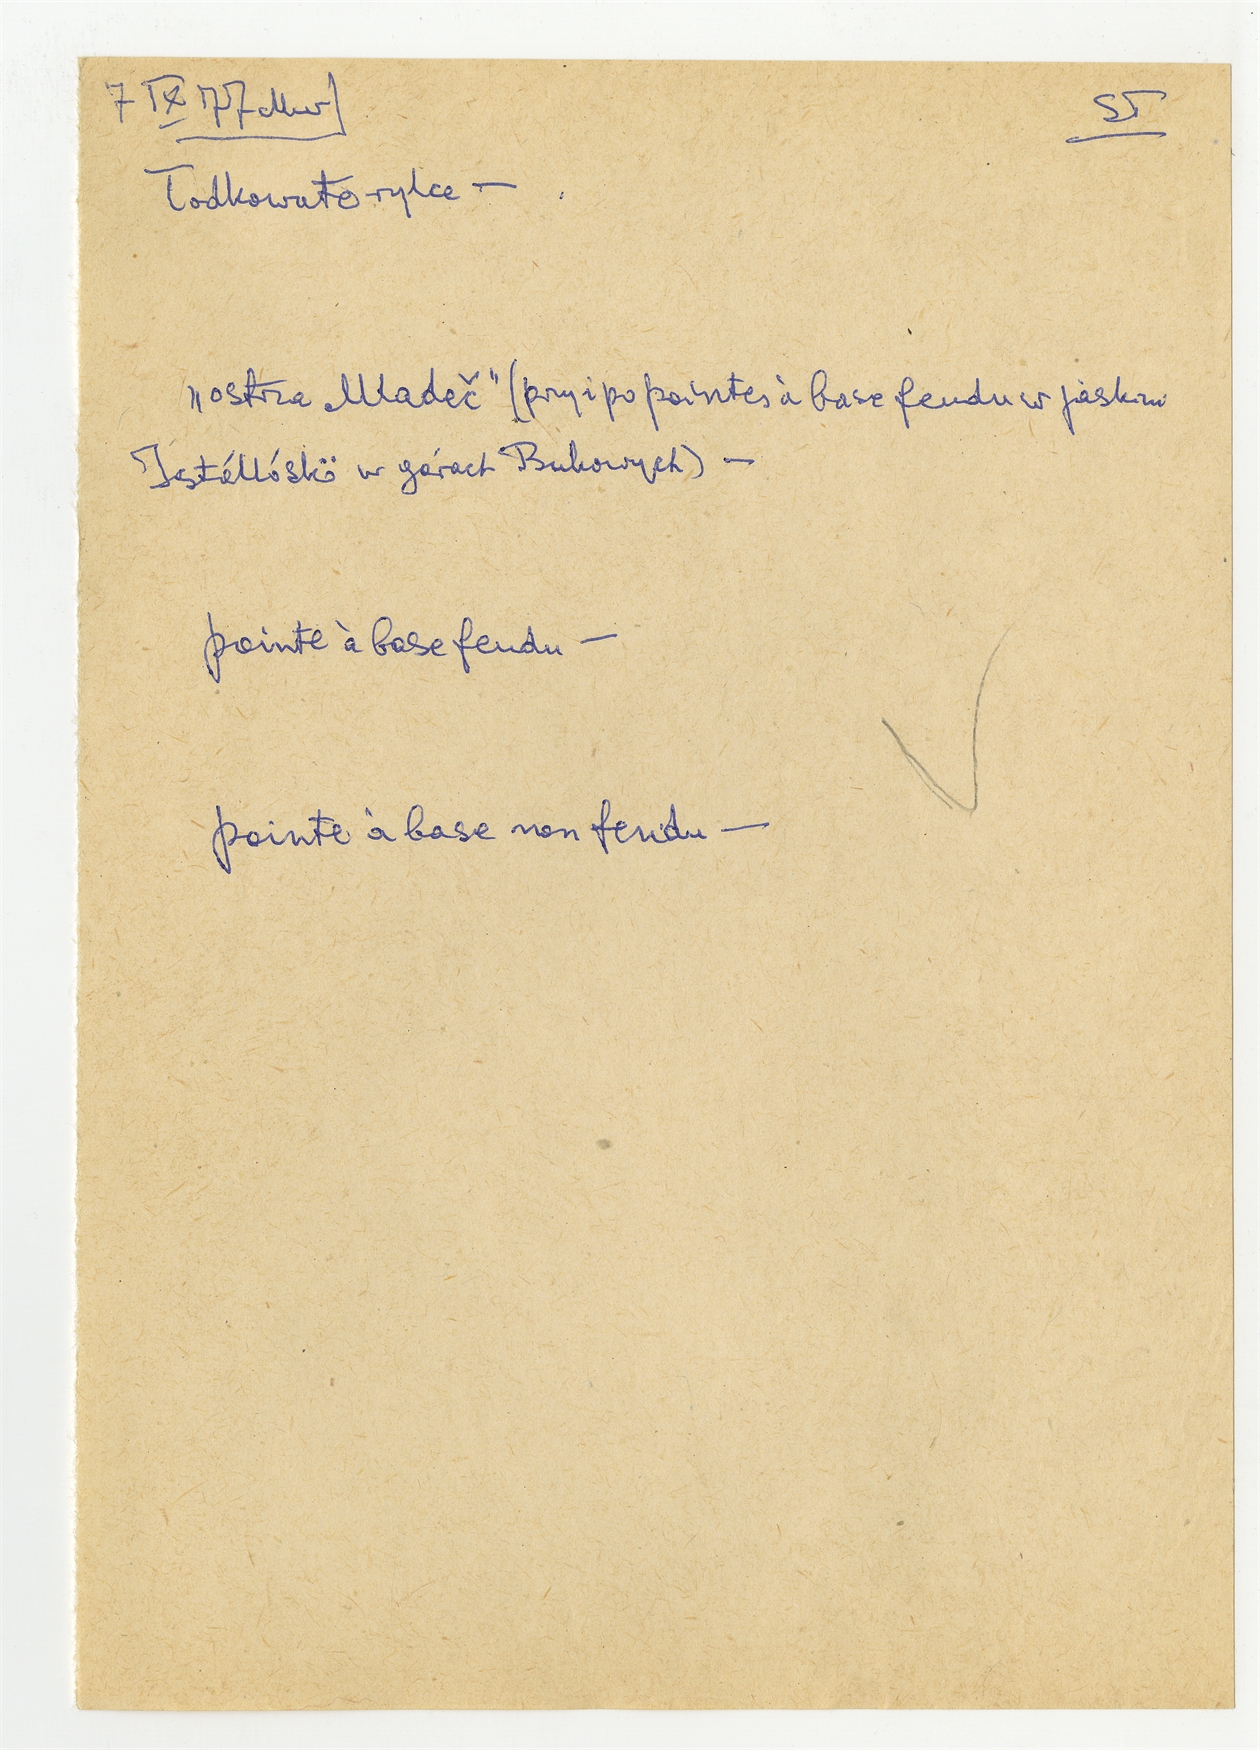 7 IX 77
ST
Łodkowato rylce —
"ostrza Mladeč" (przy i po pointes à base fendu w jaskini
Istállóskö w górach Bukowych) —
pointe à base fendu —
pointe à base non fendu —